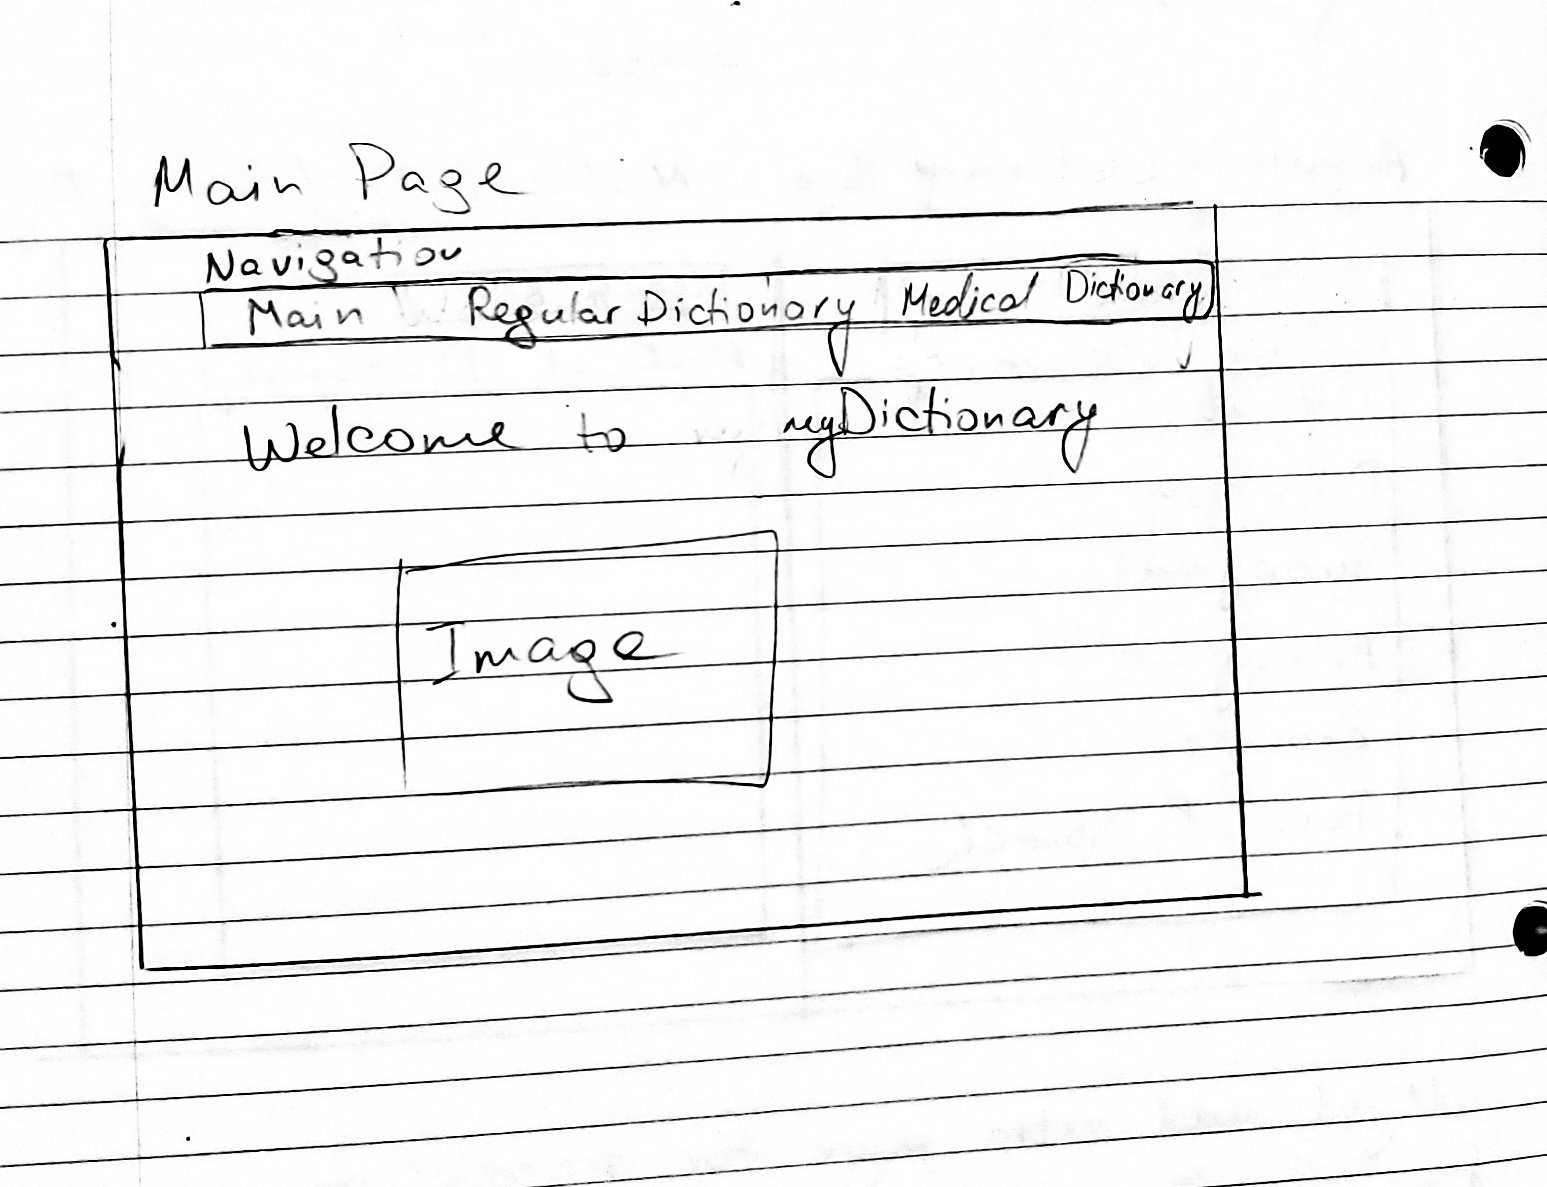 Main Page
Navigation
Main Regular Dictionary Medical Dictionary
Welcome to myDictionary
Image